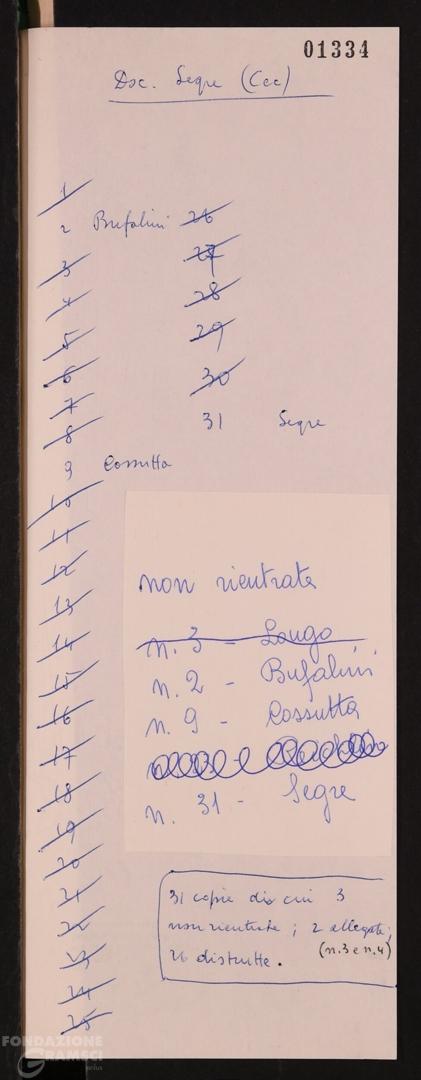 01334
Doc. Segre (Cec)
1
2 Bufalini
3
4
5
6
7
8
9 Cossutta
10
11
12
13
14
15
16
17
18
19
20
21
22
23
24
25
26
27
28
29
30
31 Segre
non rientrate
n. 3 - Longo
n. 2 - Bufalini
n. 9 - Cossutta
n. 31 - Segre
31 copie di cui 3
non rientrate; 2 allegate;
(n. 3 e n. 4)
26 distrutte.
FONDAZIONE
GRAMSCI